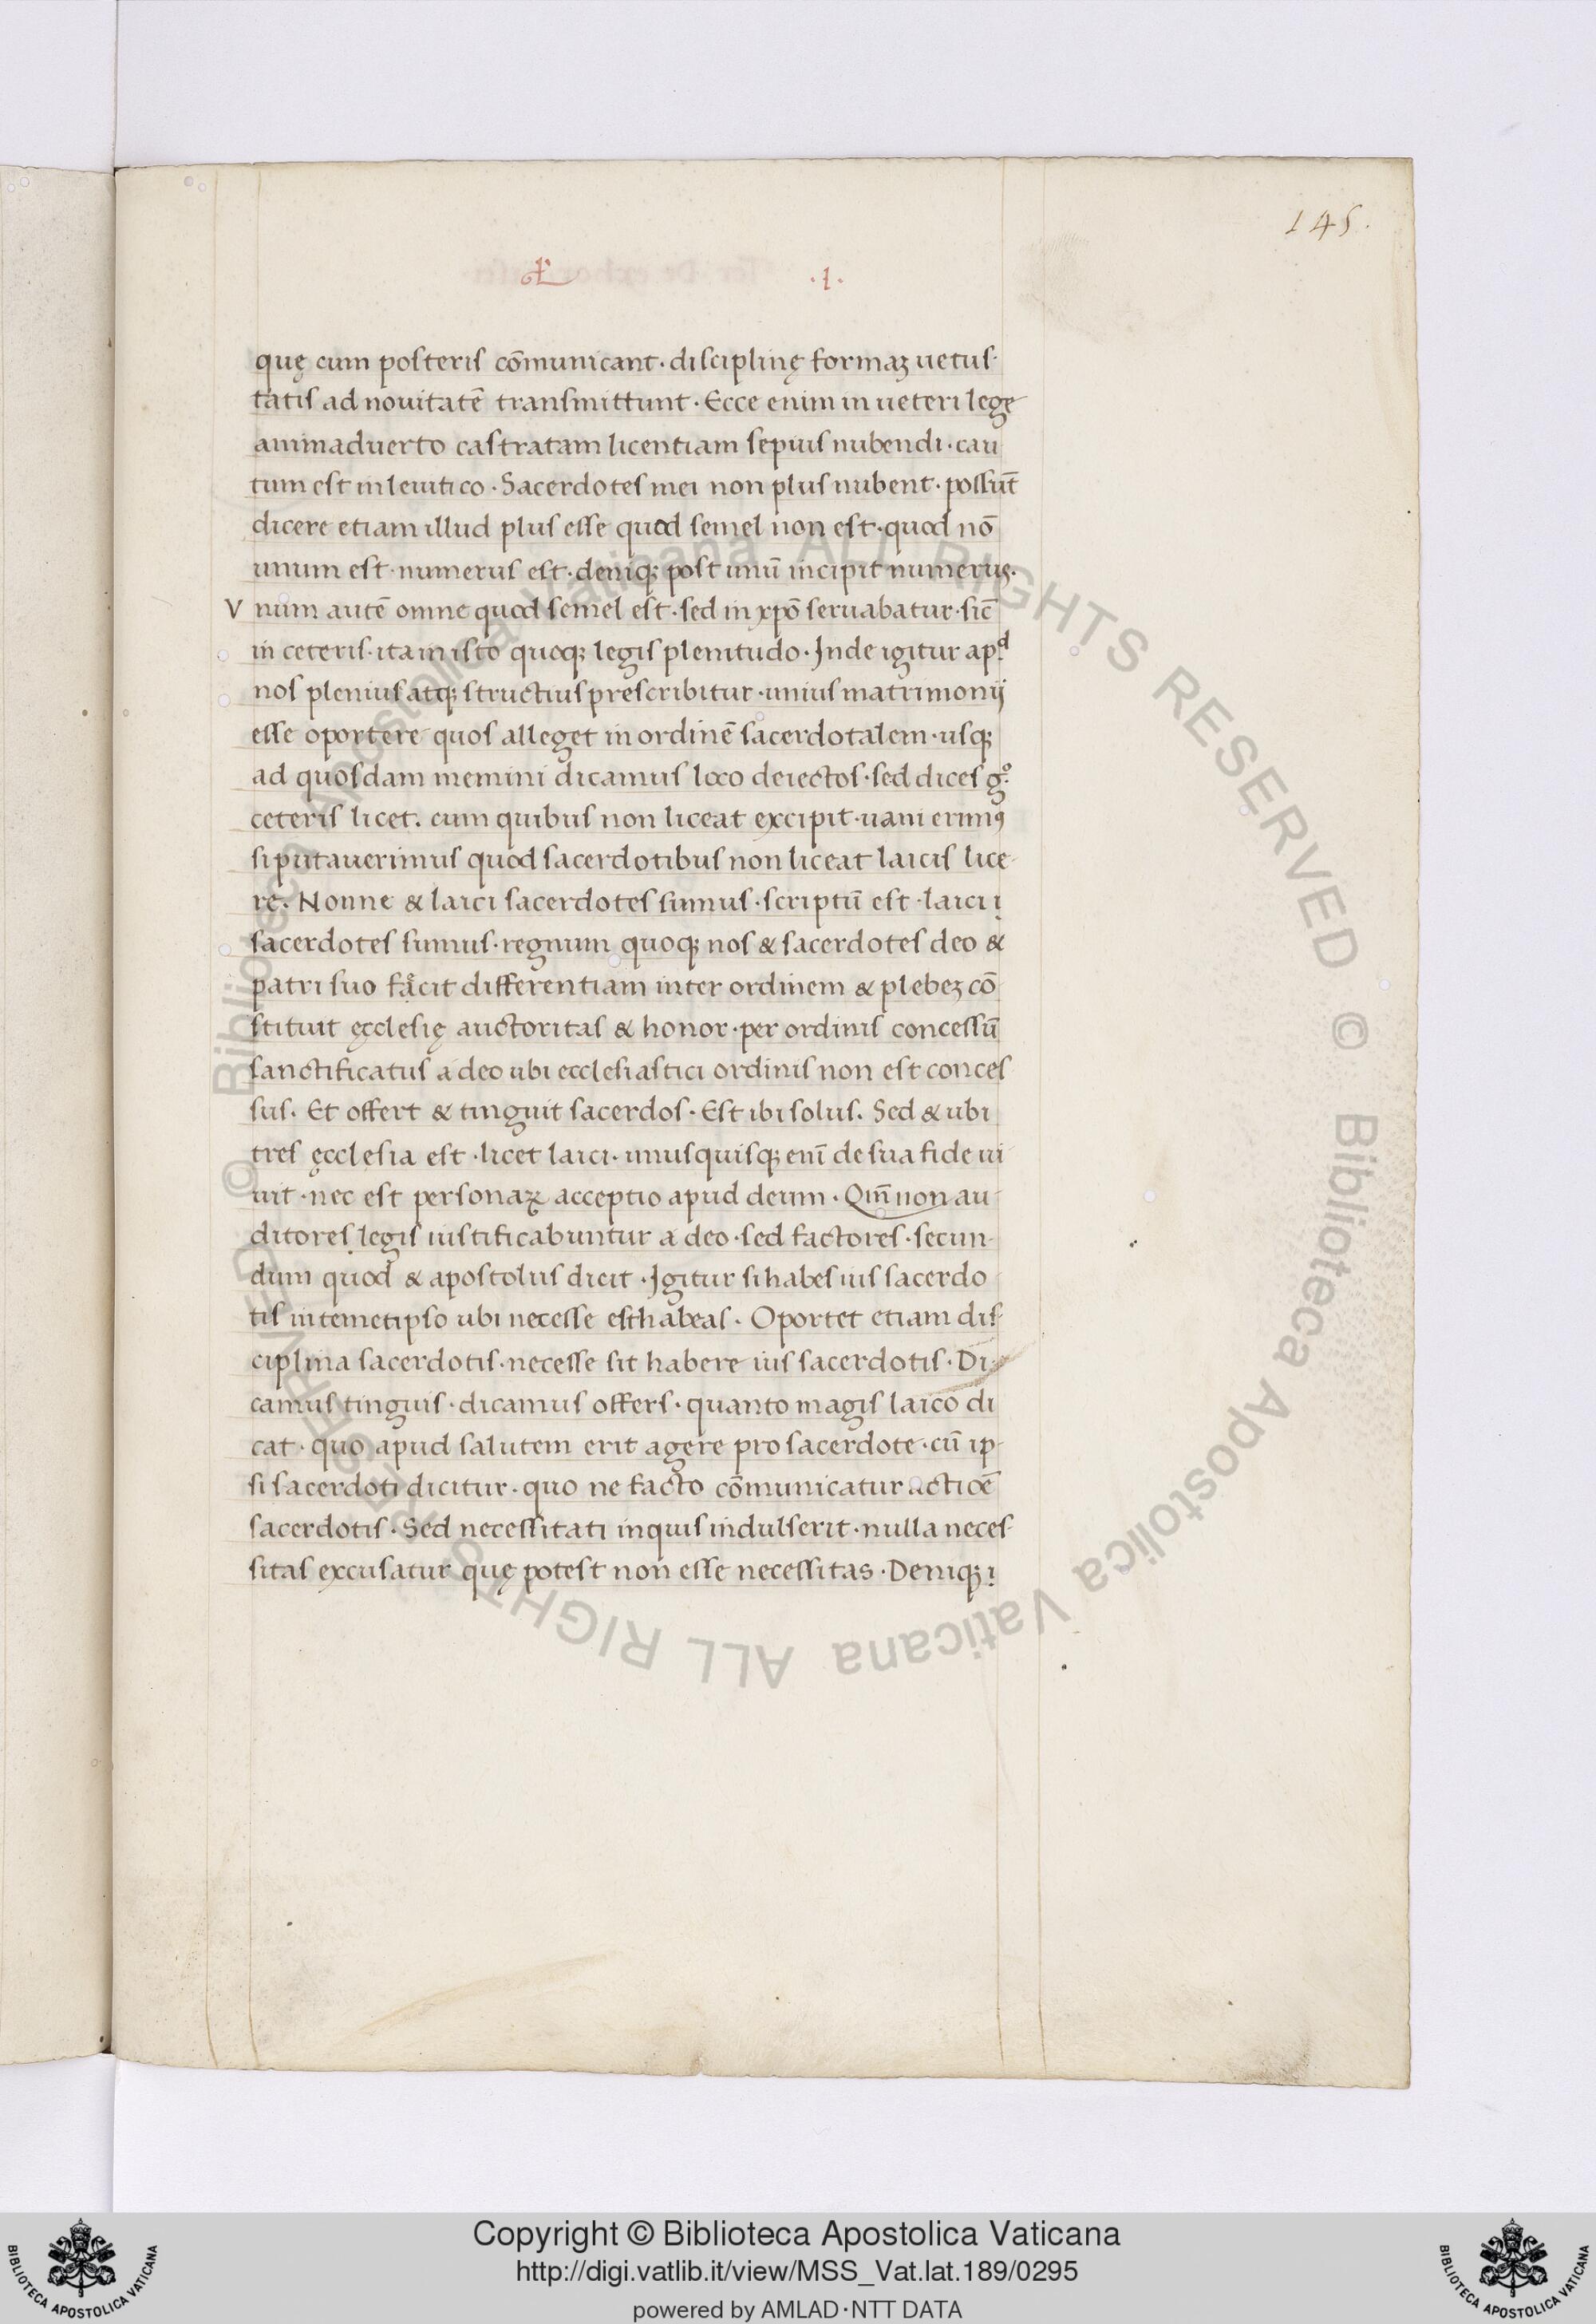 145.
.1.
quę cum posteris cōmunicant. disciplinę formaꝫ uetus-
tatis ad nouitatē transmittunt. Ecce enim in ueteri lege
animaduerto castratam licentiam sepius nubendi. cau
tum est in leuitico. Sacerdotes mei non plus nubent. possūt
dicere etiam illud plus esse quod semel non est. quod nō
unum est. numerus est. deniqꝫ post unū incipit numerus.
V num autē omne quod semel est. sed in xp̄o seruabatur. sic̄
in ceteris. ita in isto quoqꝫ legis plenitudo. Inde igitur apᵈ
nos plenius atqꝫ structius prescribitur. unius matrimonij
esse oportere quos alleget in ordinē sacerdotalem. usqꝫ
ad quosdam memini dicamus loco deiectos. sed dices gͦ.
ceteris licet. cum quibus non liceat excipit. uani erimꝰ
si putauerimus quod sacerdotibus non liceat laicis lice-
re. Nonne & laici sacerdotes sumus. scriptū est. laici ı
sacerdotes sumus. regnum quoqꝫ nos & sacerdotes deo &
patri suo facit differentiam inter ordinem & plebeꝫ cō-
stituit ęcclesię auctoritas & honor. per ordinis concessū
sanctificatus a deo ubi ecclesiastici ordinis non est conces
sus. Et offert & tinguit sacerdos. Est ibi solus. Sed & ubi
tres ęcclesia est. licet laici. unusquisqꝫ eni̅ de sua fide ui
uit. nec est personaꝝ acceptio apud deum. Qm̄ non au-
ditores legis iustificabuntur a deo. sed factores. secun-
dum quod & apostolus dicit. Igitur si habes ius sacerdo
tis in temetipso ubi necesse est habeas. Oportet etiam dis-
ciplina sacerdotis. necesse sit habere ius sacerdotis. Di
camus tinguis. dicamus offers. quanto magis laico di
cat. quo apud salutem erit agere pro sacerdote. cū ip-
si sacerdoti dicitur. quo ne facto cōmunicatur actiōē
sacerdotis. Sed necessitati inquis indulserit. nulla neces-
sitas excusatur quę potest non esse necessitas. Deniqꝫ ı
© Biblioteca Apostolica Vaticana ALL RIGHTS RESERVED © Biblioteca Apostolica Vaticana ALL RIGHTS RESERVED
Copyright © Biblioteca Apostolica Vaticana
http://digi.vatlib.it/view/MSS_Vat.lat.189/0295
powered by AMLAD·NTT DATA
BIBLIOTECA APOSTOLICA VATICANA
BIBLIOTECA APOSTOLICA VATICANA